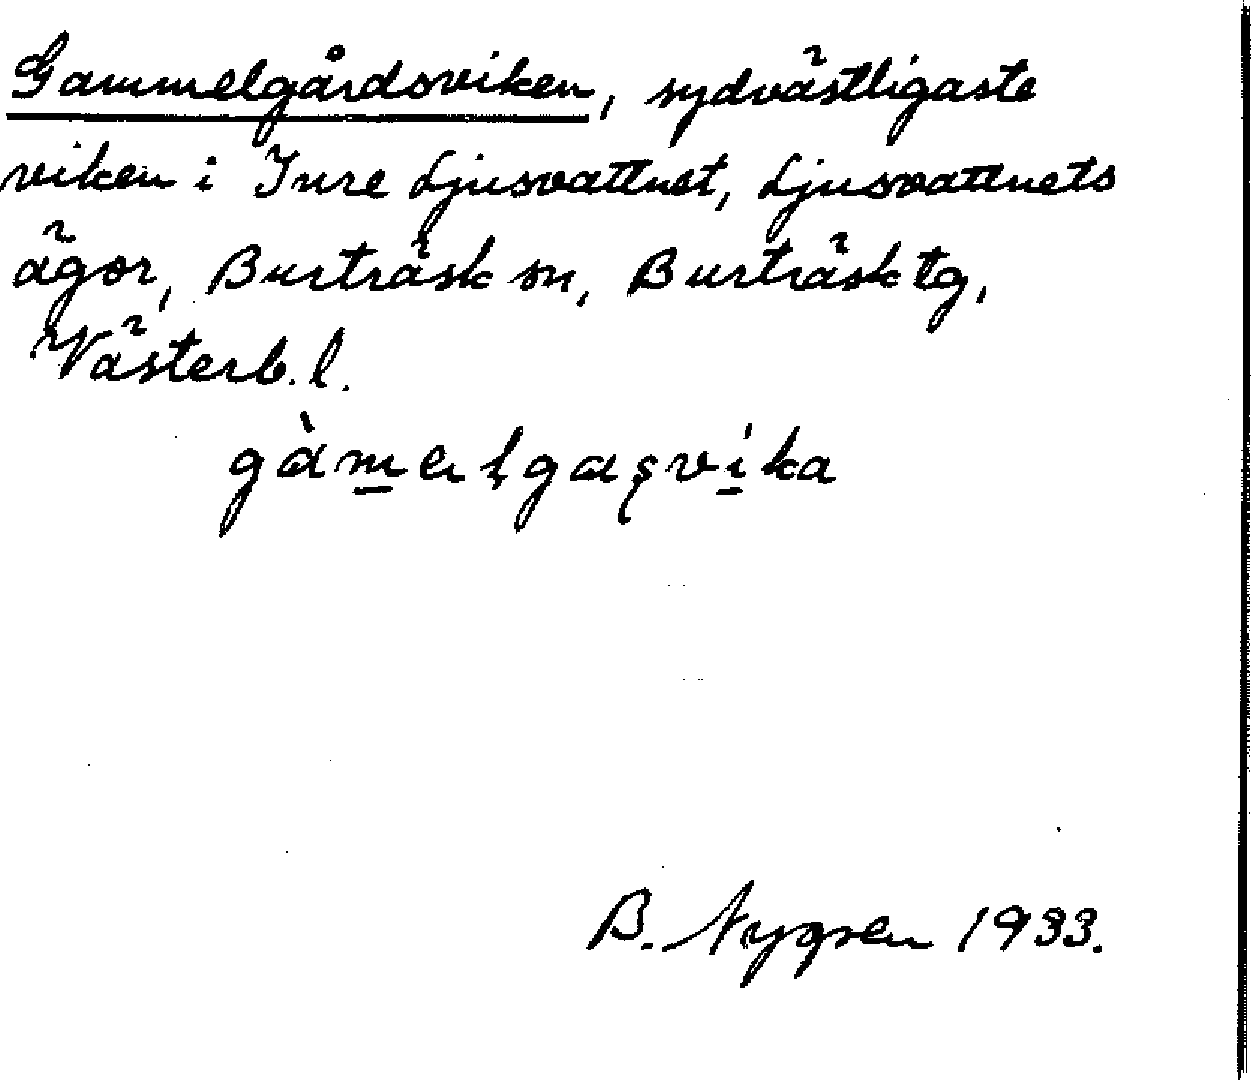 Gammelgårdsviken, sydvästligaste
viken i Inre Ljusvattnet, Ljusvattnets
ägor, Burträsk sn, Burträsk tg,
Västerb. l.
gàmelgaʂvika
B. Nygren 1933.